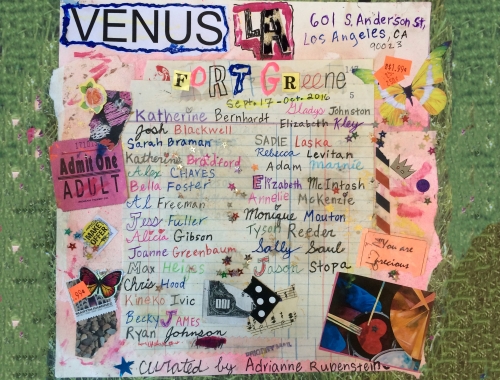 VENUS
LA
601 S. Anderson St,
Los Angeles, CA
90023
FORT GReene
Sept. 17 - Oct. 2016
Katherine Bernhardt
Gladys Johnston
Josh Blackwell
Elizabeth Kley
Sarah Braman
SADIE Laska
Katherine Bradford
Rebecca Levitan
Alex CHAVES
Adam Marnie
Bella Foster
Elizabeth McIntosh
Al Freeman
Annelie McKenzie
Jess Fuller
Monique Mouton
Alicia Gibson
Tyson Reeder
Joanne Greenbaum
Sally Saul
Max Heiges
Jason Stopa
Chris Hood
Kineko Ivic
Becky JAMES
Ryan Johnson
Admit One
ADULT
You are
Precious
001
Curated by Adrianne Rubenstein